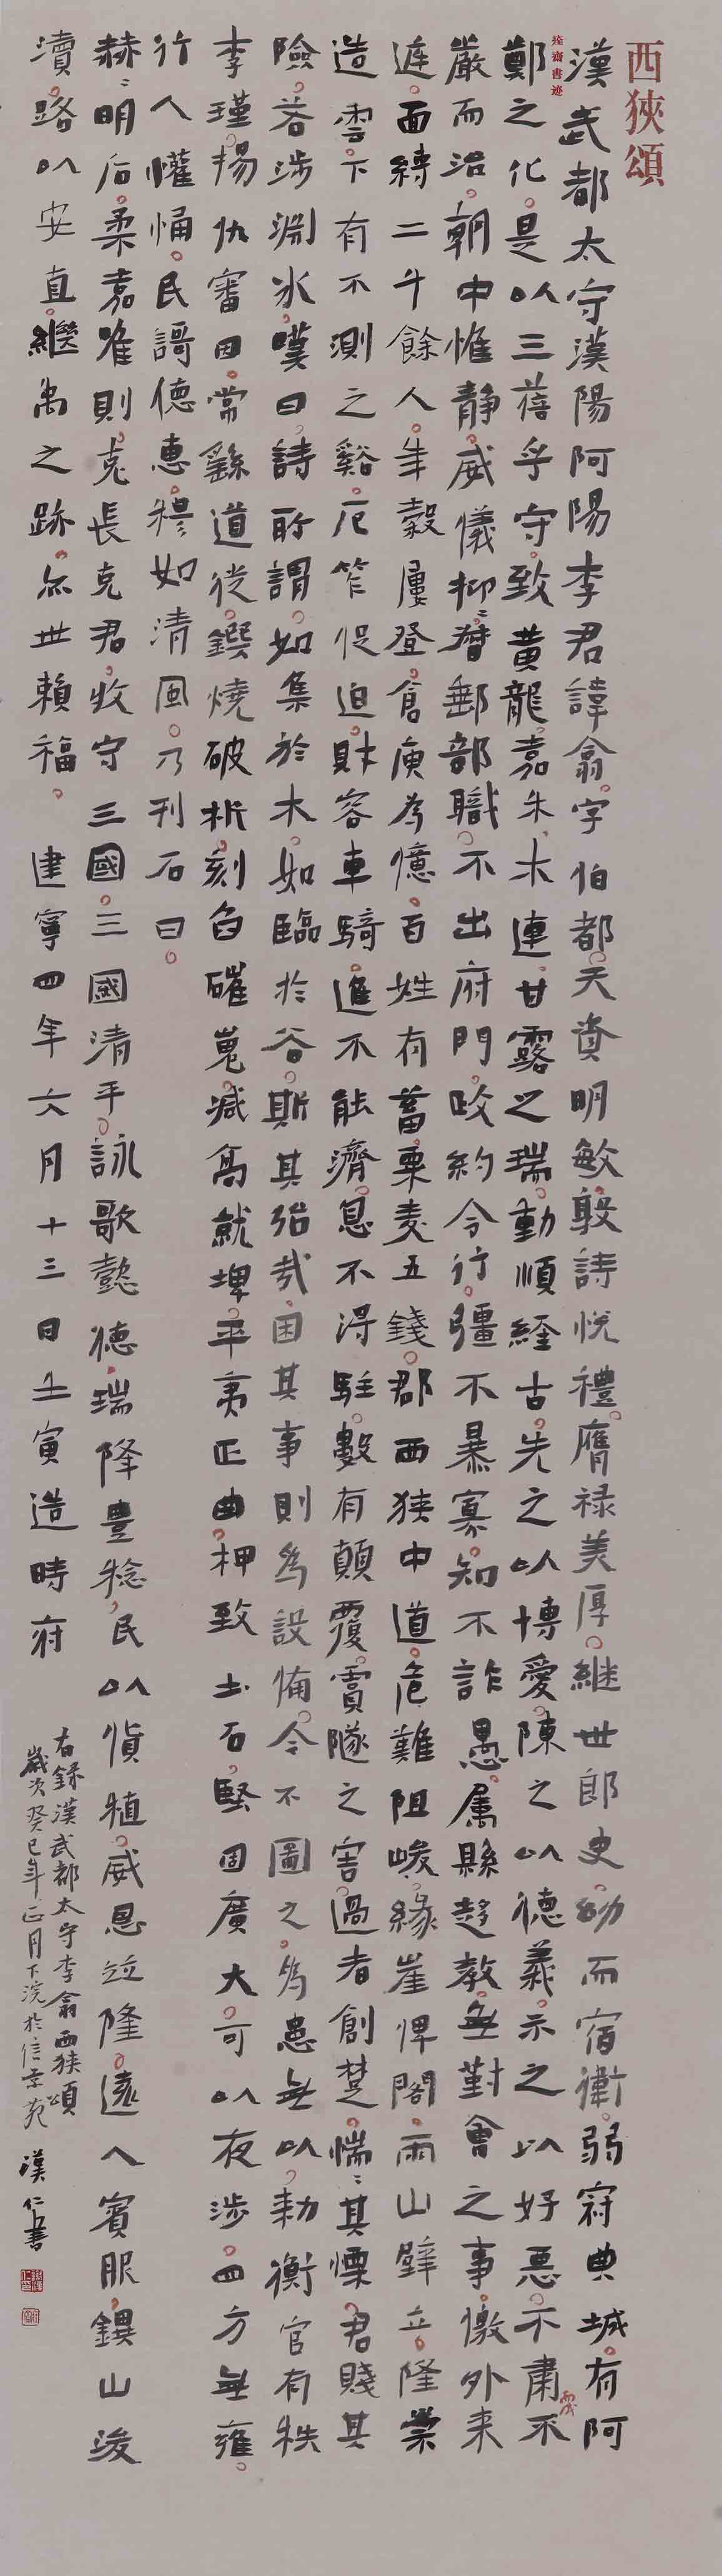 西狹頌
漢武都太守漢陽阿陽李君諱翕字伯都天資明敏敦詩悅禮膺祿美厚繼世郎吏幼而宿衛弱冠典城有阿
鄭之化是以三蒞乎守致黃龍嘉禾木連甘露之瑞動順經古先之以博愛陳之以德義示之以好惡不肅不
嚴而治朝中惟靜威儀抑抑督郵部職不出府門政約令行彊不暴寡知不詐愚属縣趍教無對會之事徼外来
迬面縛二千餘人年穀屢登倉庾為億百姓有蓄粟麦五錢郡西狹中道危難阻峻緣崖俾閣兩山壁立隆崇
造雲下有不測之谿厄笮促迫財容車騎進不能濟息不得駐數有顛覆霣隧之害過者創楚惴惴其慄君踐其
險若涉淵氷嘆曰詩所謂如集於木如臨於谷斯其殆哉困其事則為設備今不圖之為患無以勑衡官有秩
李瑾掾仇審因常繇道徒鐉燒破析刻臽磪嵬減高就埤平夷正曲柙致土石堅固廣大可以夜涉四方無雍
行人懽悀民謌德惠穆如清風乃刊石曰
赫赫明后柔嘉惟則克長克君牧守三國三國清平詠歌懿德瑞降豊稔民以貨稙威恩竝隆遠人賓服鐉山浚
瀆路以安直繼禹之跡亦世賴福 建寧四年六月十三日壬寅造時府
右録漢武都太守李翕西狹頌
歲次癸巳年正月下浣於信京苑 漢仁書